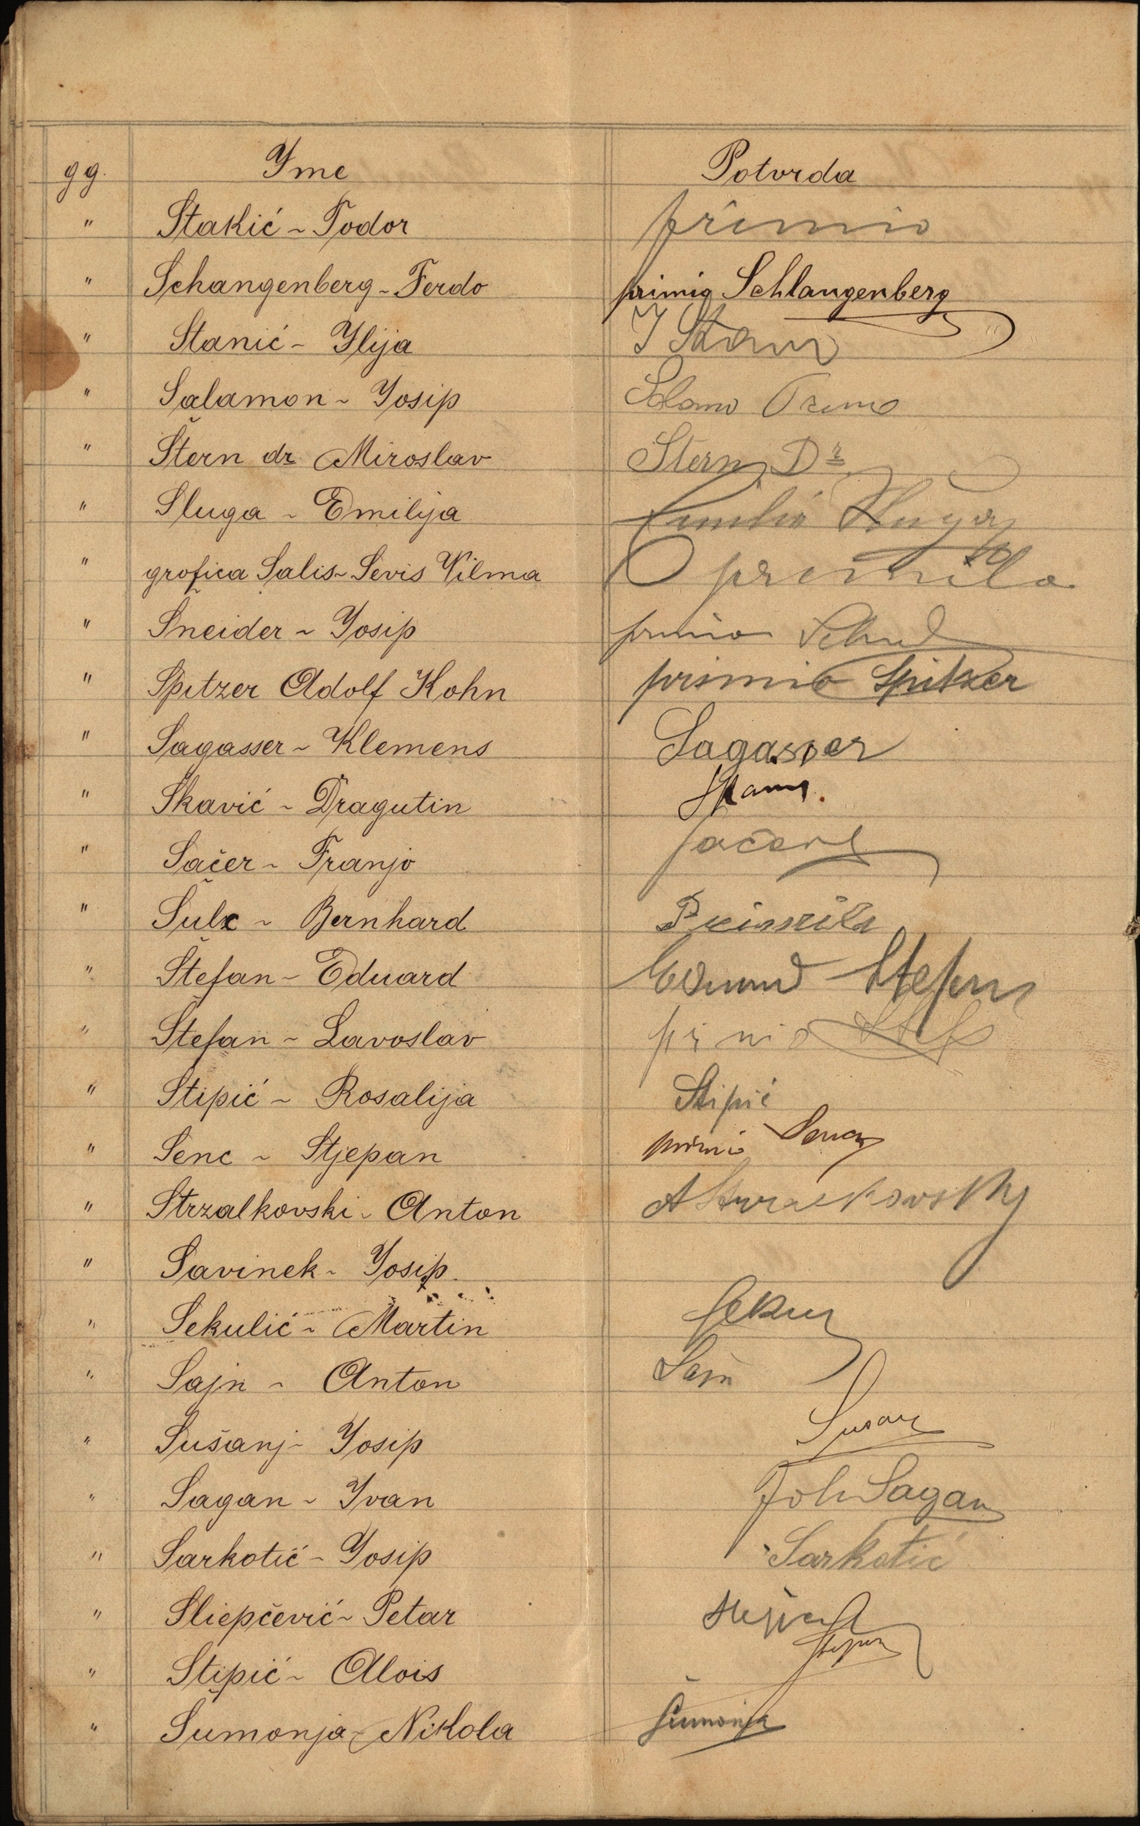 gg. Yme Potvrda
" Stakić ~ Todor primio
" Schangenberg ~ Ferdo primio Schlangenberg
" Stanić ~ Ylija I Stanic
" Salamon ~ Yosip
" Štern dr Miroslav Stern Dr
" Sluga ~ Emilija Emilia Sluga
" grofica Salis~Sevis Vilma primila
" Šneider ~ Yosip primio
" Spitzer Adolf Kohn primio Spitzer
" Sagasser ~ Klemens Sagasser
" Skavić ~ Dragutin
" Sačer ~ Franjo
" Šulx ~ Bernhard
" Štefan ~ Eduard Stefan
" Štefan ~ Lavoslav primio
" Stipić ~ Rosalija Stipić
" Senc ~ Stjepan primio Senc
" Strzalkovski ~ Anton A Strzalkovsky
" Savinek ~ Yosip.
" Sekulić ~ Martin
" Sajn ~ Anton Sajn
" Sušanj ~ Yosip
" Sagan ~ Yvan Joh Sagan
" Sarkotić ~ Yosip Sarkotić
" Sliepčević ~ Petar
" Stipić ~ Alois
" Šumonja ~ Nikola Šumonja